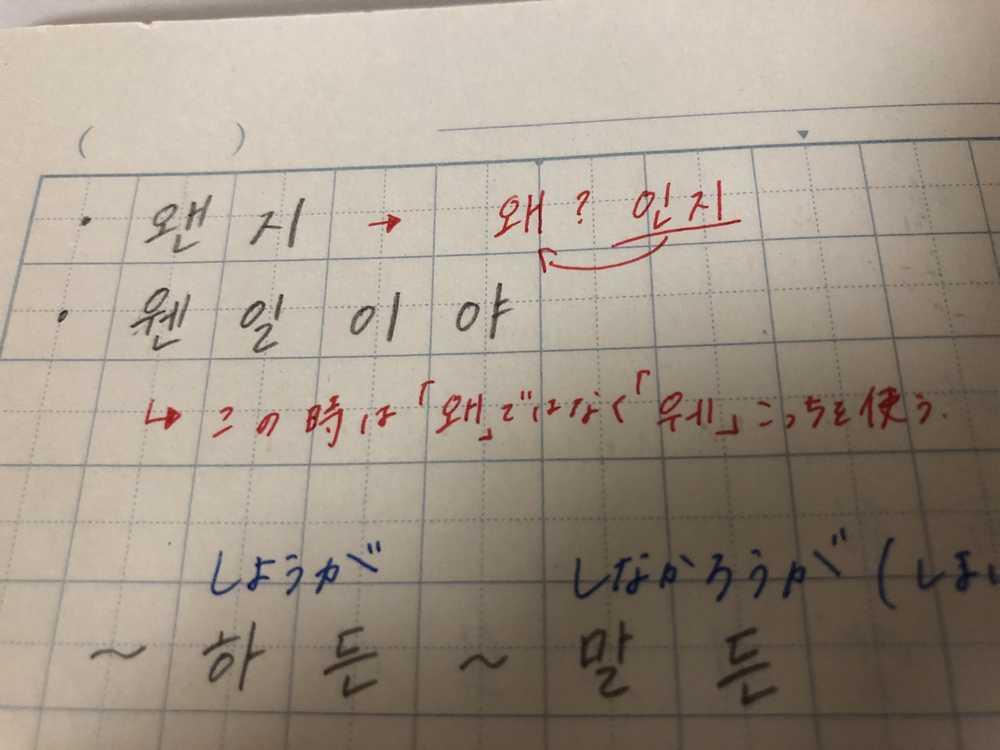 ( )
・ 왠지 → 왜? 인지
・ 웬일이야
↳ この時は「왜」ではなく「우ㅔ」こっちを使う.
しようが しなかろうが (しまい
~하든 ~말든